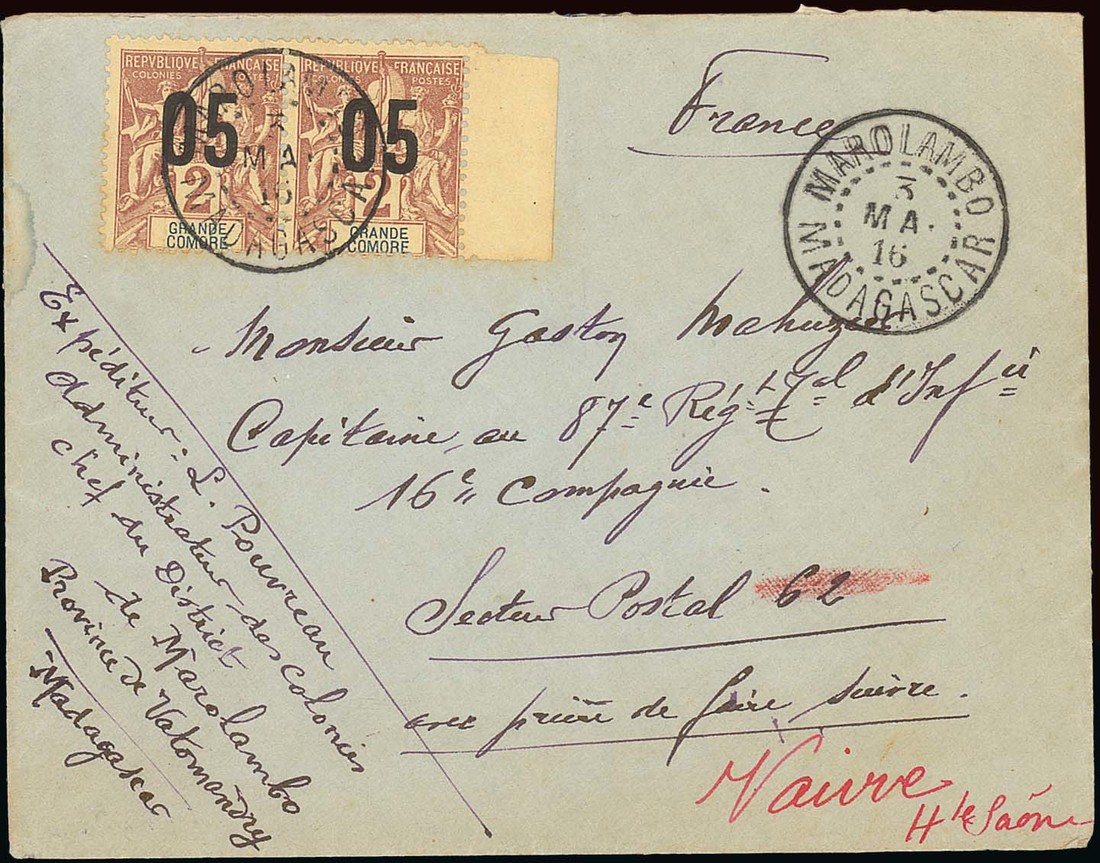 REPVBLIQVE FRANÇAISE
COLONIES POSTES
05
2
GRANDE
COMORE
REPVBLIQVE FRANÇAISE
COLONIES POSTES
05
2
GRANDE
COMORE
MAROLAMBO
MA.
16
MADAGASCAR
France
MAROLAMBO
3
MA.
16
MADAGASCAR
Monsieur Gaston
Capitaine au 87e Régt d'Infie
16e Compagnie.
Secteur Postal 62
avec prière de faire suivre.
Vaivre
Hte Saône
Expéditeur: L. Pouvreau
Administrateur des Colonies
Chef du District
de Marolambo
Province de Vatomandry
Madagascar